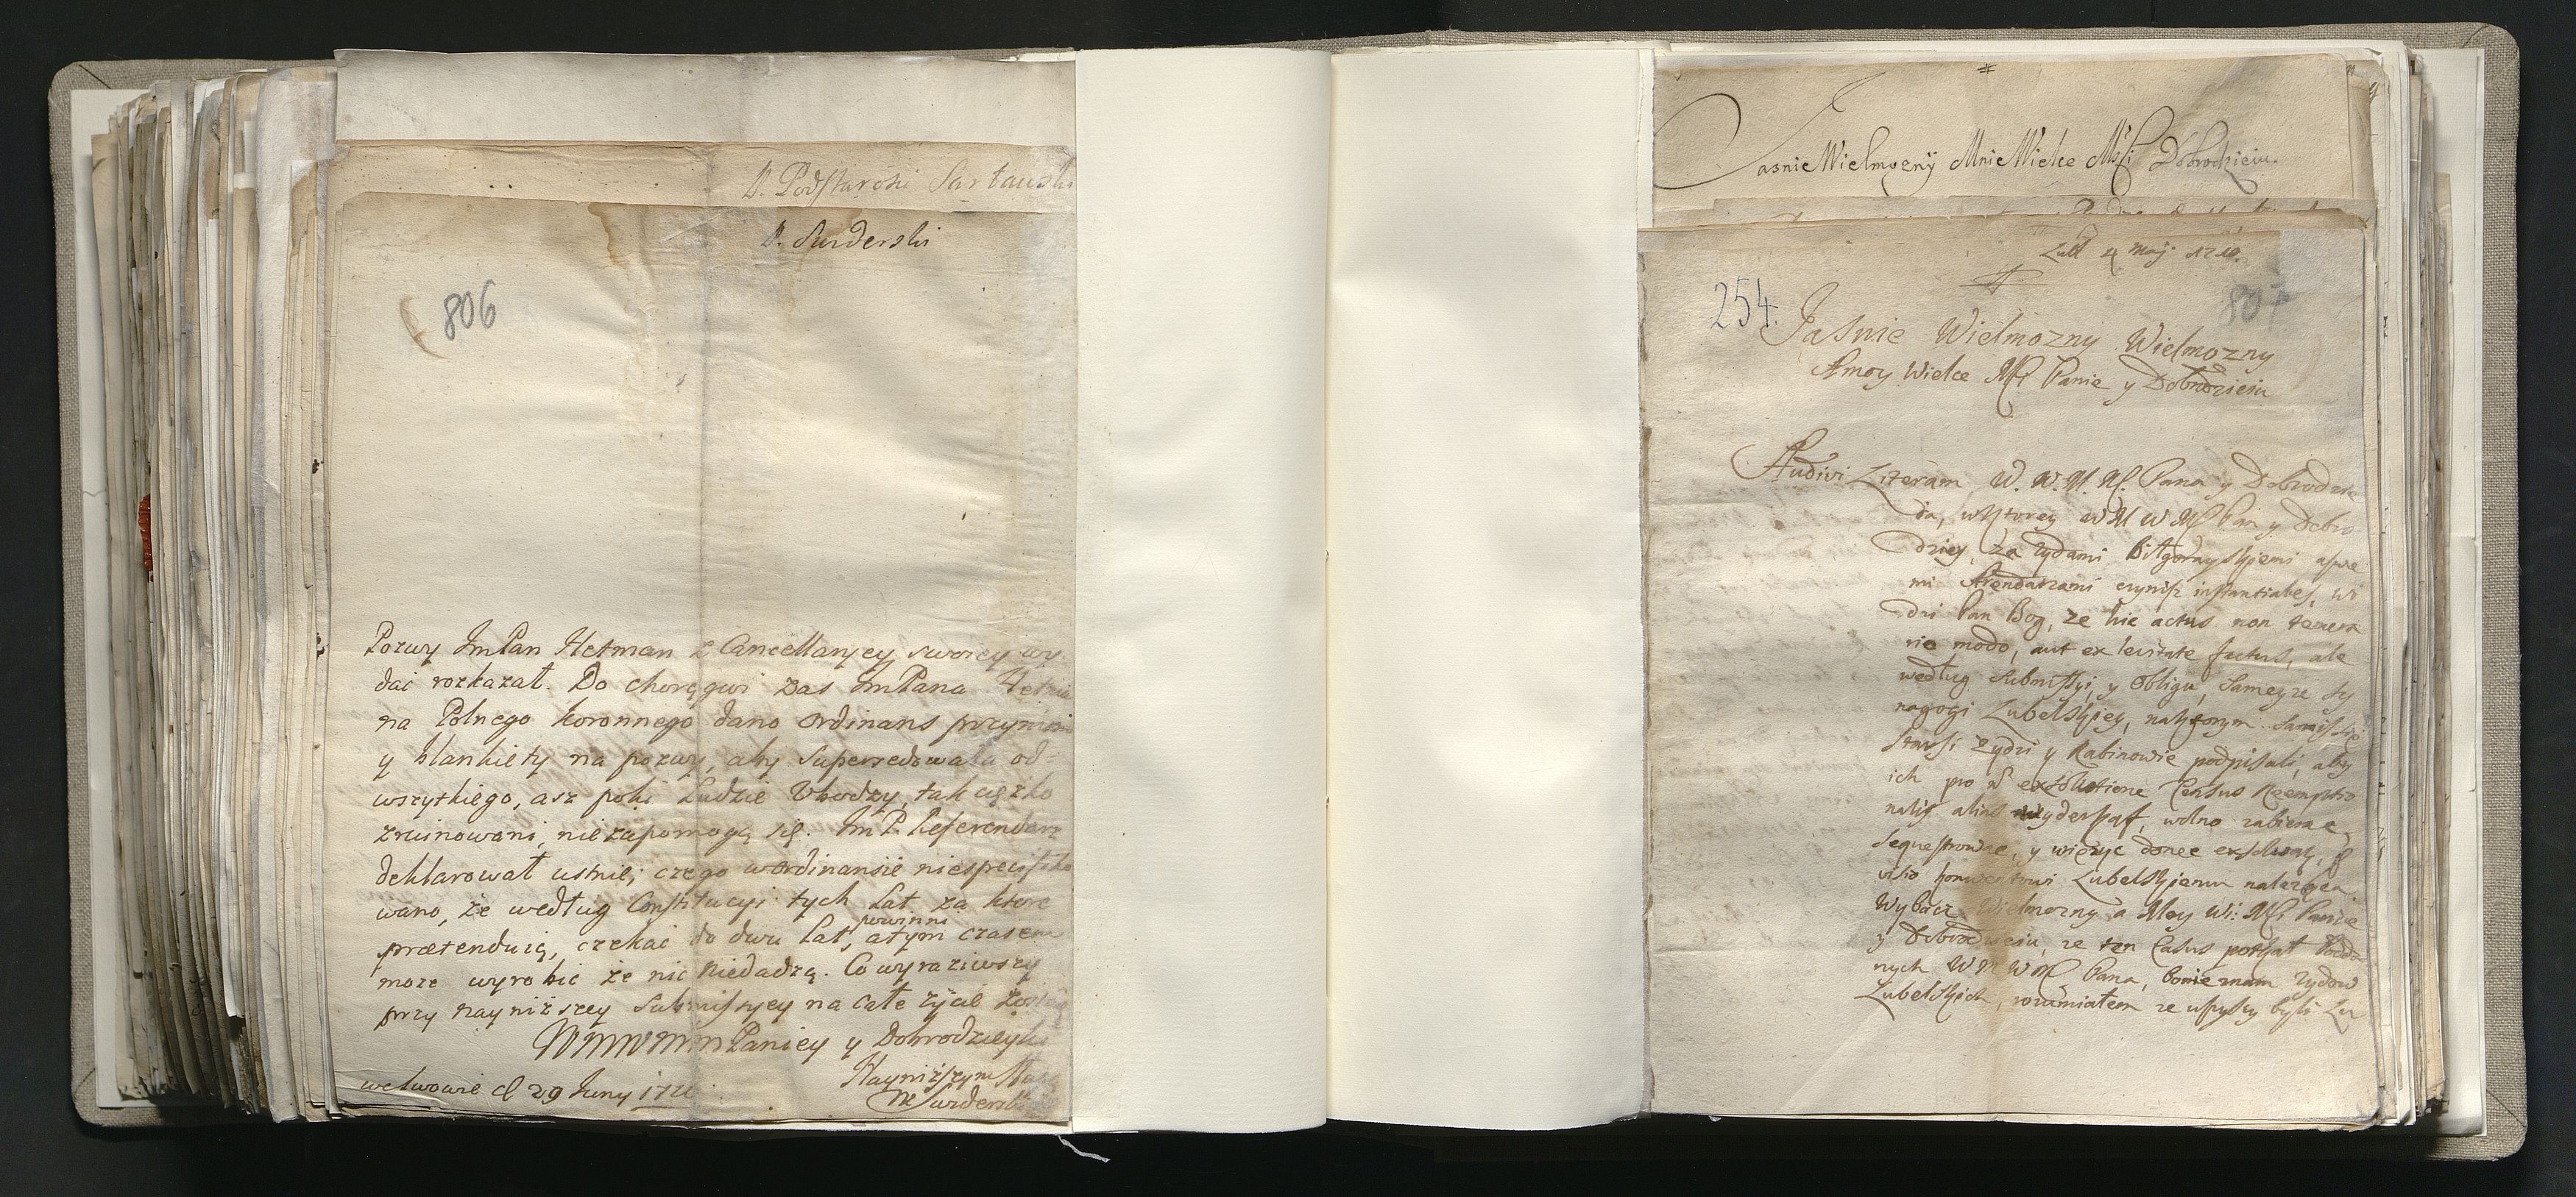 P. Podstarosci
P. Surderski
806
Pozwy ImPan Hetman z Cancellaryey swoiey wy
dać rozkazał. Do chorągwi zas ImPana Hetma
na Polnego koronnego dano ordinans
y blankiety na pozwy, aby supersedowała od=
wszytkiego, asz poki Ludzie Vbodzy, tak ciężko
zruinowani, niezapomogą się. Im P. Referendarz
deklarował ustnie, czego wordinansie
wano, że według Constitucyi tych Lat za ktore
prætenduią, czekać do dwu Lat, powinni atym czasem
moze wyrobic że nic niedadzą. Co wyraziwszy
przy nayniższey submissyey na całe życie
WMWMMPaniey y Dobrodzieyki
Nayniższym
welwowie d 29 Juny
Surderski
JasnieWielmozny MnieWielce Dobrodzieiu.
4 Maij
254.
807
Jasnie Wielmozny Wielmozny
Amoy Wielce Mśći Panie y Dobrodzieiu
Audivi Literam W. W. M. M. Pana y Dobrodzie
ia, wktorey WMWM Pan y Dobro
dziey, za zydami Biłgorayskiemi aswe
mi Arendarzami czynisz instantiales, wi
dzi Pan Bog, ze hic actus non temera
rio modo, aut ex levitate factus, ale
według Submissyi, y Obligu, Sameyze Sy
nagogi Lubelskiey, naktorym
Starsi zydzi y Rabinowie podpisali, aby
ich pro exsolutione Census Reemptio
nalis alias wyderkaf, wolno zabierac
Sequestrowac, y więzyc donec exsolvant,
Konwentowi Lubelskiemu
Wybacz Wielmozny a Moy Wi: Mśći Panie
y Dobrodzieiu, ze ten Casus potkał Podda
nych WMWM Pana, Zydow
Lubelskich, rozumiałem ze wszyscy byli Lu